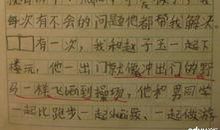 每次有不会的问题他都帮我解决
有一次，我和赵子玉一起下
楼玩，他一出门就像冲出门的野
马一样飞洒到操场，他和男同学
一起比跑步、一起